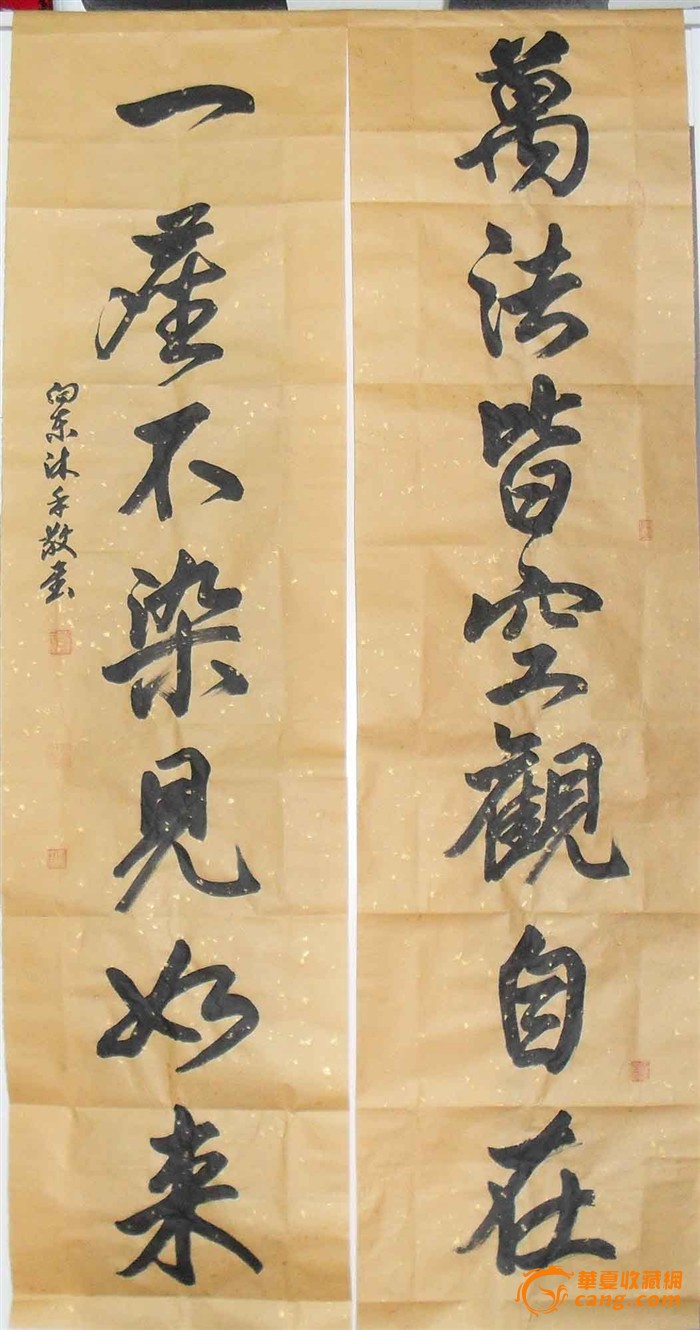 萬法皆空觀自在
一塵不染見如来
向东沐手敬書
華夏收藏網
cang.com